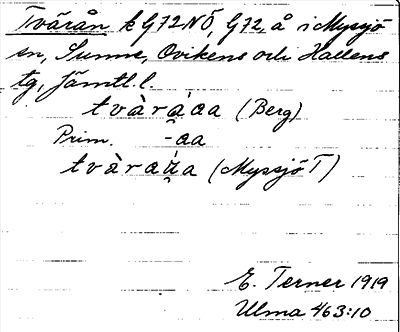 Tvärån k G72NÖ, G72, å i Myssjö
sn, Sunne, Ovikens och Hallens
tg, Jämtl. l.
tvàrá̤aa (Berg)
Prim. -aa
tvàraá̤a (Myssjö T)
E. Terner 1919
Ulma 463:10